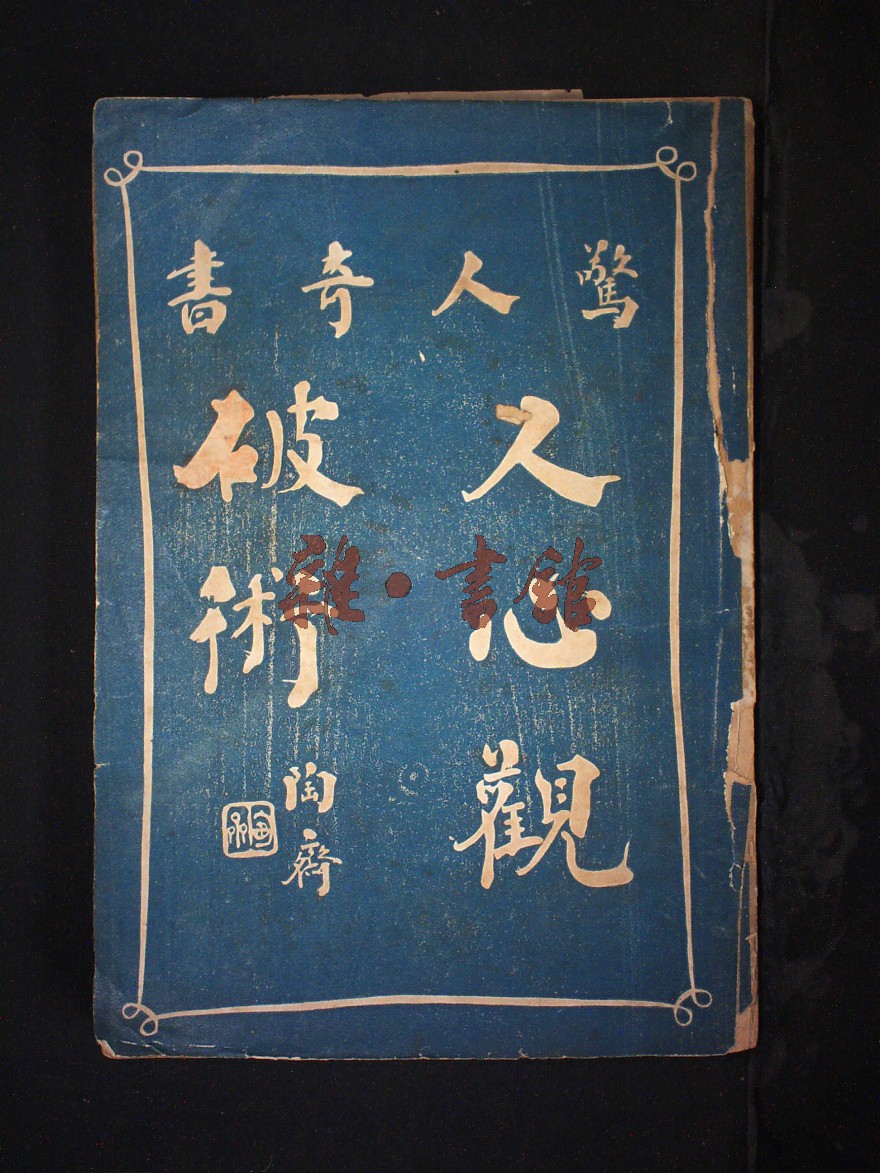 驚人奇書
人心觀
破術
陶齋
雜·書館